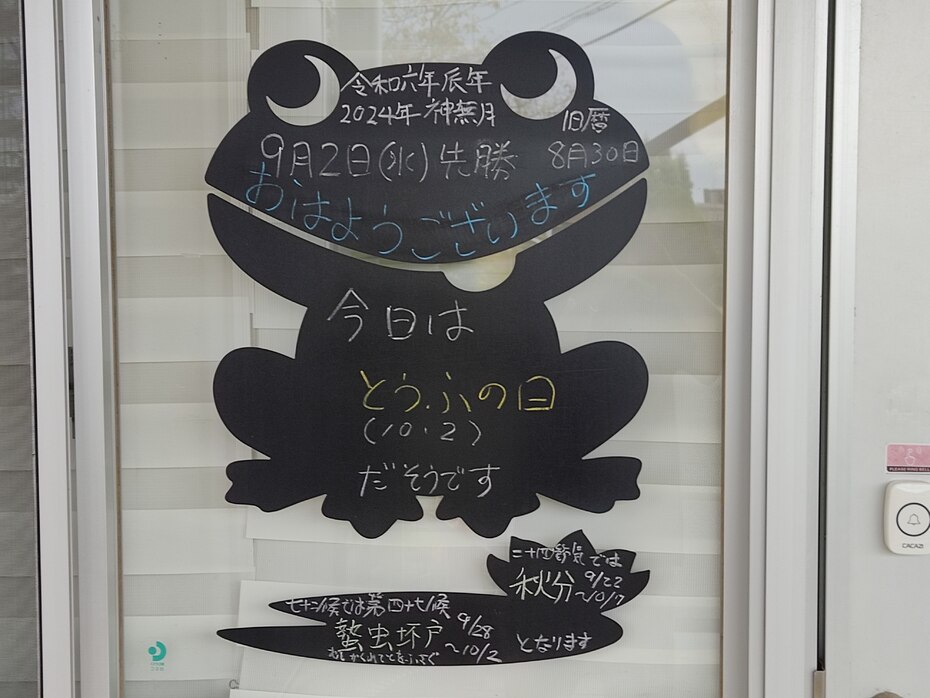 令和六年辰年
2024年神無月
旧暦
9月2日(水)先勝
8月30日
おはようございます
今日は
とうふの日
(10・2)
だそうです
二十四節気では
秋分 9/22
~10/7
七十二候では第四十七候
蟄虫坏戸 9/28
~10/2
となります
むしかくれてとをふさぐ
PLEASE RING BELL
CACAZI